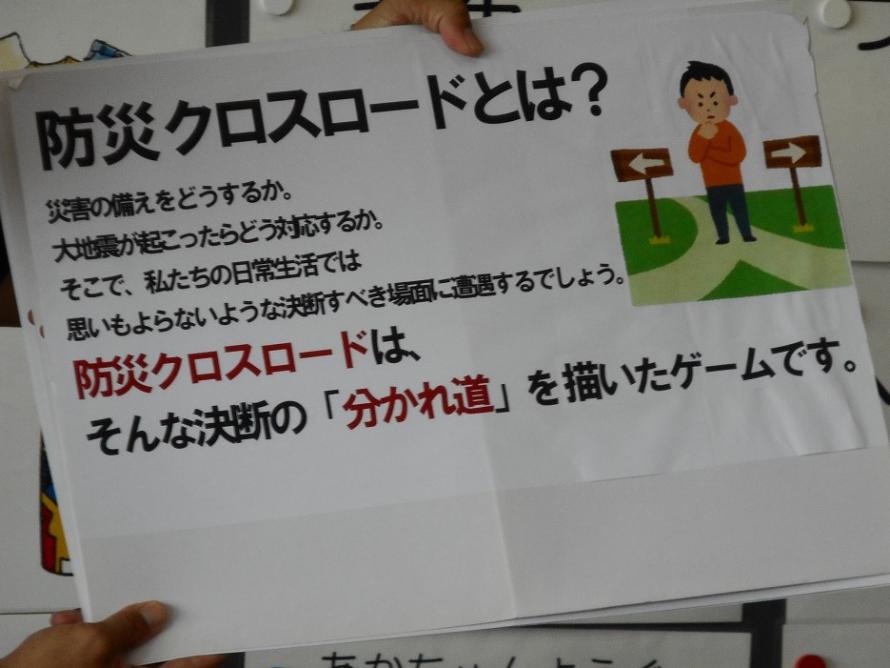 防災クロスロードとは?
災害の備えをどうするか。
大地震が起こったらどう対応するか。
そこで、私たちの日常生活では
思いもよらないような決断すべき場面に遭遇するでしょう。
防災クロスロードは、
そんな決断の「分かれ道」を描いたゲームです。